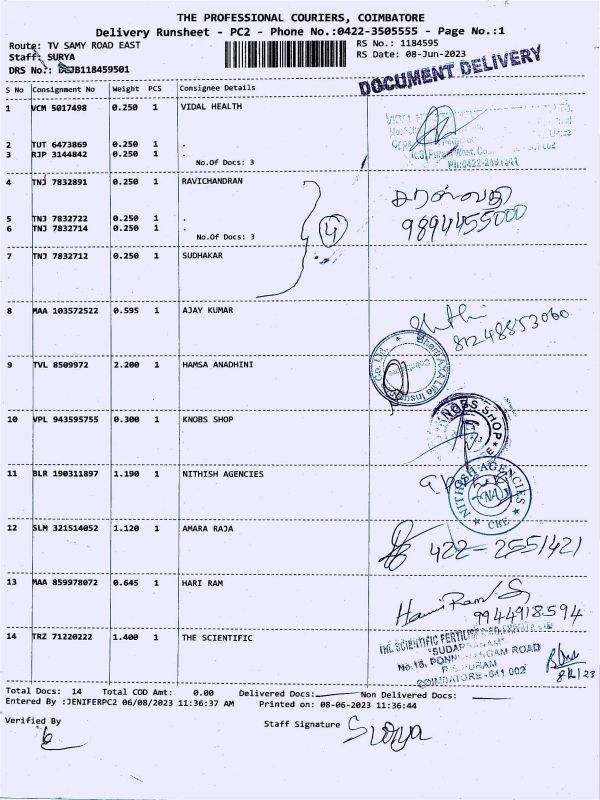 THE PROFESSIONAL COURIERS, COIMBATORE
Delivery Runsheet - PC2 - Phone No.:0422-3505555 - Page No.:1
Route: TV SAMY ROAD EAST
RS No.: 1184595
Staff: SURYA
RS Date: 08-Jun-2023
DRS No.: DSJB118459501
DOCUMENT DELIVERY
S No Consignment No Weight PCS Consignee Details
1 VCM 5017498 0.250 1 VIDAL HEALTH
2 TUT 6473869 0.250 1 .
3 RJP 3144842 0.250 1 .
No.Of Docs: 3
Ph:0422-2491
4 TNJ 7832891 0.250 1 RAVICHANDRAN
சரஸ்வதி
9894455000
5 TNJ 7832722 0.250 1 .
6 TNJ 7832714 0.250 1 .
No.Of Docs: 3
4
7 TNJ 7832712 0.250 1 SUDHAKAR
8 MAA 103572522 0.595 1 AJAY KUMAR
81248853060
9 TVL 8509972 2.200 1 HAMSA ANADHINI
Bharti AXA Life Insurance Co. Ltd.
Coimbatore
10 VPL 943595755 0.300 1 KNOBS SHOP
KNOBS SHOP
11 BLR 190311897 1.190 1 NITHISH AGENCIES
NITHISH AGENCIES
NA
CBE
12 SLM 321514052 1.120 1 AMARA RAJA
422-2551421
13 MAA 859978072 0.645 1 HARI RAM
Hari Ram S
9944918594
14 TRZ 71220222 1.400 1 THE SCIENTIFIC
THE SCIENTIFIC FERTILISER CO. PRIVATE LTD
"SUDARSANAM"
No.16, PONNURANGAM ROAD
R.S. PURAM
COIMBATORE - 641 002
8/6/23
Total Docs: 14 Total COD Amt: 0.00 Delivered Docs: Non Delivered Docs:
Entered By :JENIFERPC2 06/08/2023 11:36:37 AM Printed on: 08-06-2023 11:36:44
Verified By
Staff Signature Surya